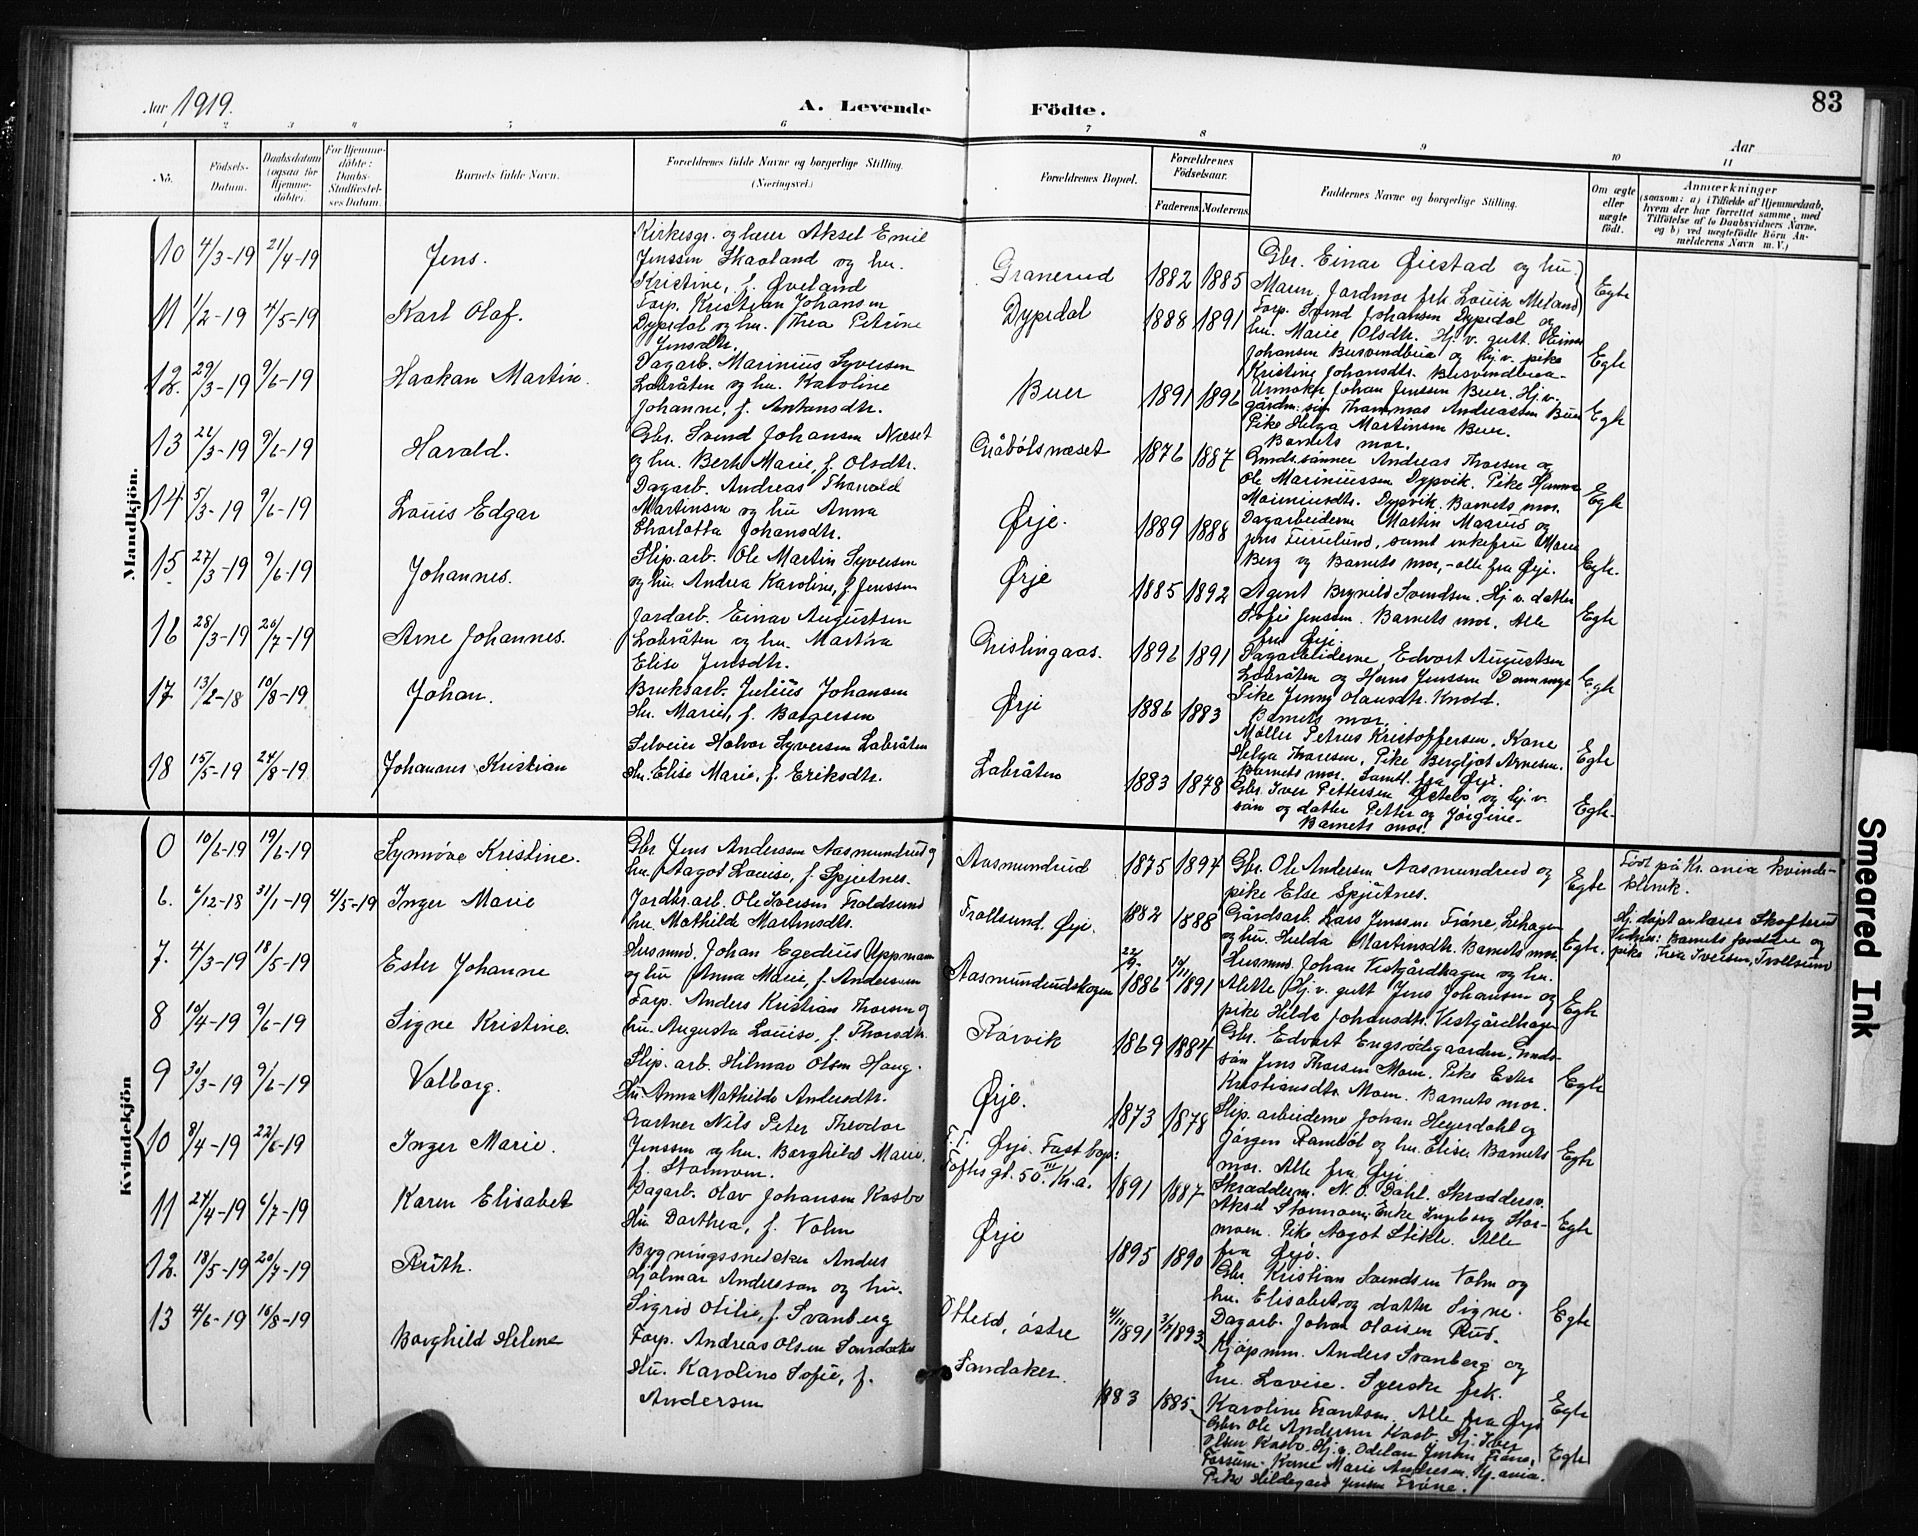 Aar 1919.
A. Levende Födte.
83
Aar
1 2 3 4 5 6 7 8 9 10 11
No.
Födsels-Datum.
Daabsdatum (ogsaa for Hjemme-döbte).
For Hjemme-döbte: Daabs-Stadfæstel-ses Datum.
Barnets fulde Navn.
Forældrenes fulde Navne og borgerlige Stilling. (Næringsvei.)
Forældrenes Bopæl.
Forældrenes Födselsaar.
Faderens. Moderens.
Faddernes Navne og borgerlige Stilling.
Om ægte eller uægte födt.
Anmærkninger
(saasom: a) i Tilfælde af Hjemmedaab, hvem der har forrettet samme, med Tilföielse af to Daabsvidners Navne, og b) ved uægtefödte Börn An-melderens Navn m. V.)
Mandkjön.
10 4/3-19 21/4-19 Jens.
Kirkesgr. og lærer Aksel Emil
Jenssen Skaaland og hu.
Kristine, f. Øveland
Granerud 1882 1885
Gbr. Einar Øiestad og hu.
Maren. Jordmor frk Louise Meland
Egte
11 1/2-19 4/5-19 Karl Olaf.
Forp. Kristian Johansen
Dypedal og hu. Thea Petrine
Jensdtr.
Dypedal 1888 1891
Forp. Svend Johansen Dypedal og
hu. Marie Olsdtr. Hj. v. gutt Einar
Johansen Busvendbua og hj. v. pike
Kristine Johansdtr. Busvendbua
Egte
12. 29/3-19 9/6-19 Haakan Martin.
Dagarb. Marinius Syversen
Labråten og hu. Karoline
Johanne, f. Antonsdtr.
Buer 1891 1896
Urmaker Johan Jenssen Buer. Hj. v.
gårdm. søn Thommas Andreassen Buer
Pike Helga Martinsen Buer.
Barnets mor.
Egte
13 22/3-19 9/6-19 Harald.
Gbr. Svend Johansen Næset
og hu. Berth Marie, f. Olsdtr.
Gåbølsnæset 1876 1887
Gmds. sønner Andreas Thorsen og
Ole Mariniussen Dypvik. Pike Hanna
Mariniusdtr. Dypvik. Barnets mor.
Egte
14 5/3-19 9/6-19 Louis Edgar
Dagarb. Andreas Thorvald
Martinsen og hu Anna
Charlotta Johansdtr.
Ørje. 1889 1888
Dagarbeiderne Martin Maarud og
Jens Furulund, samt enkefru Marie
Berg og Barnets mor, - alle fra Ørje.
Egte.
15 27/3-19 9/6-19 Johannes.
Slip. arb. Ole Martin Syversen
og hu. Andrea Karoline, f. Jenssen
Ørje 1885 1892
Agent Brynild Svendsen. Hj. v. datter
Sofie Jenssen. Barnets mor. Alle
fra Ørje.
Egte
16 28/3-19 20/7-19 Arne Johannes.
Jordarb. Einar Augustsen
Labråten og hu. Martha
Elise Jensdtr.
Gislingaas. 1896 1891
Dagarbeiderne Edvart Augustsen
Labråten og Hans Jenssen
Pike Jenny Olausdtr. Knold.
Barnets mor.
Egte
17 13/2-18 10/8-19 Johan.
Bruksarb. Julius Johansen
Hu. Marie, f. Borgersen
Ørje 1886 1883
Møller Petrus Kristoffersen. Kone
Helga Thoresen, Pike Bergljot Arnesen.
Barnets mor. Samtl. fra Ørje.
Egte
18 15/5-19 24/8-19 Johannes Kristian
Selveier Halvor Syversen Labråten
Hu. Elise Marie, f. Eriksdtr.
Labråten 1883 1878
Gbr. Iver Pettersen Østebø og hj. v.
søn og datter Petter og Jørgine.
Barnets mor.
Egte.
Kvindekjön
0 10/6-19 19/6-19 Synnøve Kristine.
Gbr Jens Anderssen Aasmundrud og
hu. Aagot Louise, f. Spjutnes.
Aasmundrud 1875 1894
Gbr. Ole Andersen Aasmundrud og
pike Else Spjutnes.
Egte
Født på Kr.ania kvinde-
klinik.
6. 6/12-18 31/1-19 4/5-19 Inger Marie
Jordbr. arb. Ole Iversen Troldsund
hu. Mathilde Martinsdtr.
Trollsund. Ørje. 1882 1888
Gårdsarb. Lars Jenssen Tråne, Lihagen
og hu. Hulda Martinsdtr. Barnets mor.
Egte.
Hj. døpt av lærer Skofterud
Vidner: Barnets forældre og
pike Thea Iversen, Trollsund
7. 4/3-19 18/5-19 Ester Johanne
Husmd. Johan Egedius Uppmann
og hu Anna Marie, f. Andersen
Aasmundrudskogen 22/9-1886 14/11 1891
Husmd. Johan Vestgårdhagen og hu.
Alette Hj. v. gutt Jens Johansen og
pike Hilda Johansdtr. Vestgårdhagen
Egte
8 10/4-19 9/6-19 Signe Kristine
Forp. Anders Kristian Thorsen og
hu. Augusta Louise, f. Thorsdtr.
Rørvik 1869 1884
Gbr. Edvart Engsødegaarden, Gmds-
søn Jens Thorsen Moen. Pike Ester
Kristiansdtr. Moen. Barnets mor.
Egte
9 30/3-19 9/6-19 Valborg.
Slip. arb. Hilmar Olsen Haug.
Hu. Anna Mathilde Andersdtr.
Ørje. 1873 1878
Slip. arbeiderne Johan Heyerdahl og
Jørgen Rambøl og hu. Elise. Barnets
mor. Alle fra Ørje.
Egte
10 8/4-19 22/6-19 Inger Marie.
Gartner Nils Peter Theodor
Jenssen og hu. Borghild Marie,
f. Stommen.
F. T. Ørje. Fast bop:
Toftes gt. 50. III Kr.a. 1891 1887
Skrædderm. N. O. Dahl. Skræddersv.
Aksel Stommen. Enke Ingeborg Stom-
moen. Pike Aagot Stikle. Alle
fra Ørje.
Egte
11 27/4-19 6/7-19 Karen Elisabet
Dagarb. Olav Johansen Kasbo
Hu Dorthea, f. Volm
Ørje 1895 1890
Gbr. Kristian Svendsen Volm og
hu. Elisabet og datter Signe.
Dagarb. Johan Olaisen Rud.
Egte
12. 18/5-19 20/7-19 Ruth.
Bygningssnekker Anders
Hjalmar Andersson og hu.
Sigrid Otilie, f. Svanberg
Otteid, østre 4/11 1891 3/7 1893
Kjøpmm. Anders Svanberg og
hu. Lovise. Syerske frk.
Karoline Frantsen. Alle fra Ørje
Egte
13 4/6-19 10/8-19 Borghild Helene
Forp. Andreas Olsen Sandaker
Hu. Karoline Sofie, f.
Andersen
Sandaker. 1883 1885
Gbr. Ole Andersen Kasbo. Hj. Iver
Olsen Kasbo. Hj. v. Odelan Jensen Tråne,
Forsum. Kone Marie Andresen. Kr.ania.
Pike Hildegard Jensen Tråne.
Egte
Smeared Ink